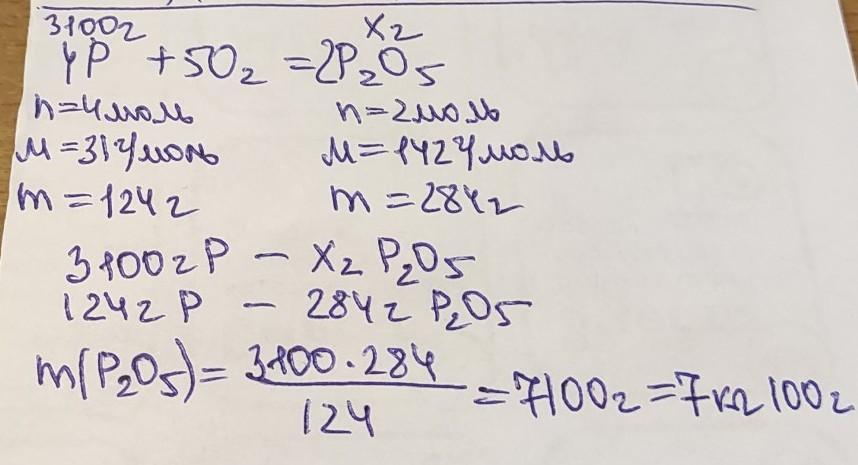 3100г хг
4P + 5O₂ = 2P₂O₅
n=4моль n=2моль
M=31г/моль M=142г/моль
m=124г m=284г
3100г P – хг P₂O₅
124г P – 284г P₂O₅
m(P₂O₅) = 3100·284 / 124 = 7100г = 7кг 100г